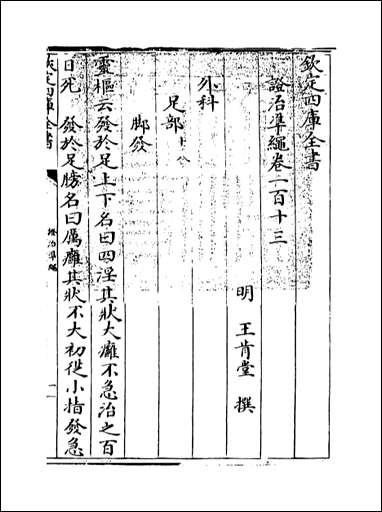 欽定四庫全書
證治凖繩卷一百十三
明 王肯堂 撰
外科
足部
脚發
靈樞云發於足上下名曰四淫其狀大癰不急治之百
日死 發於足膀名曰厲癰其狀不大初從小指發急
欽定四庫全書
證治凖繩